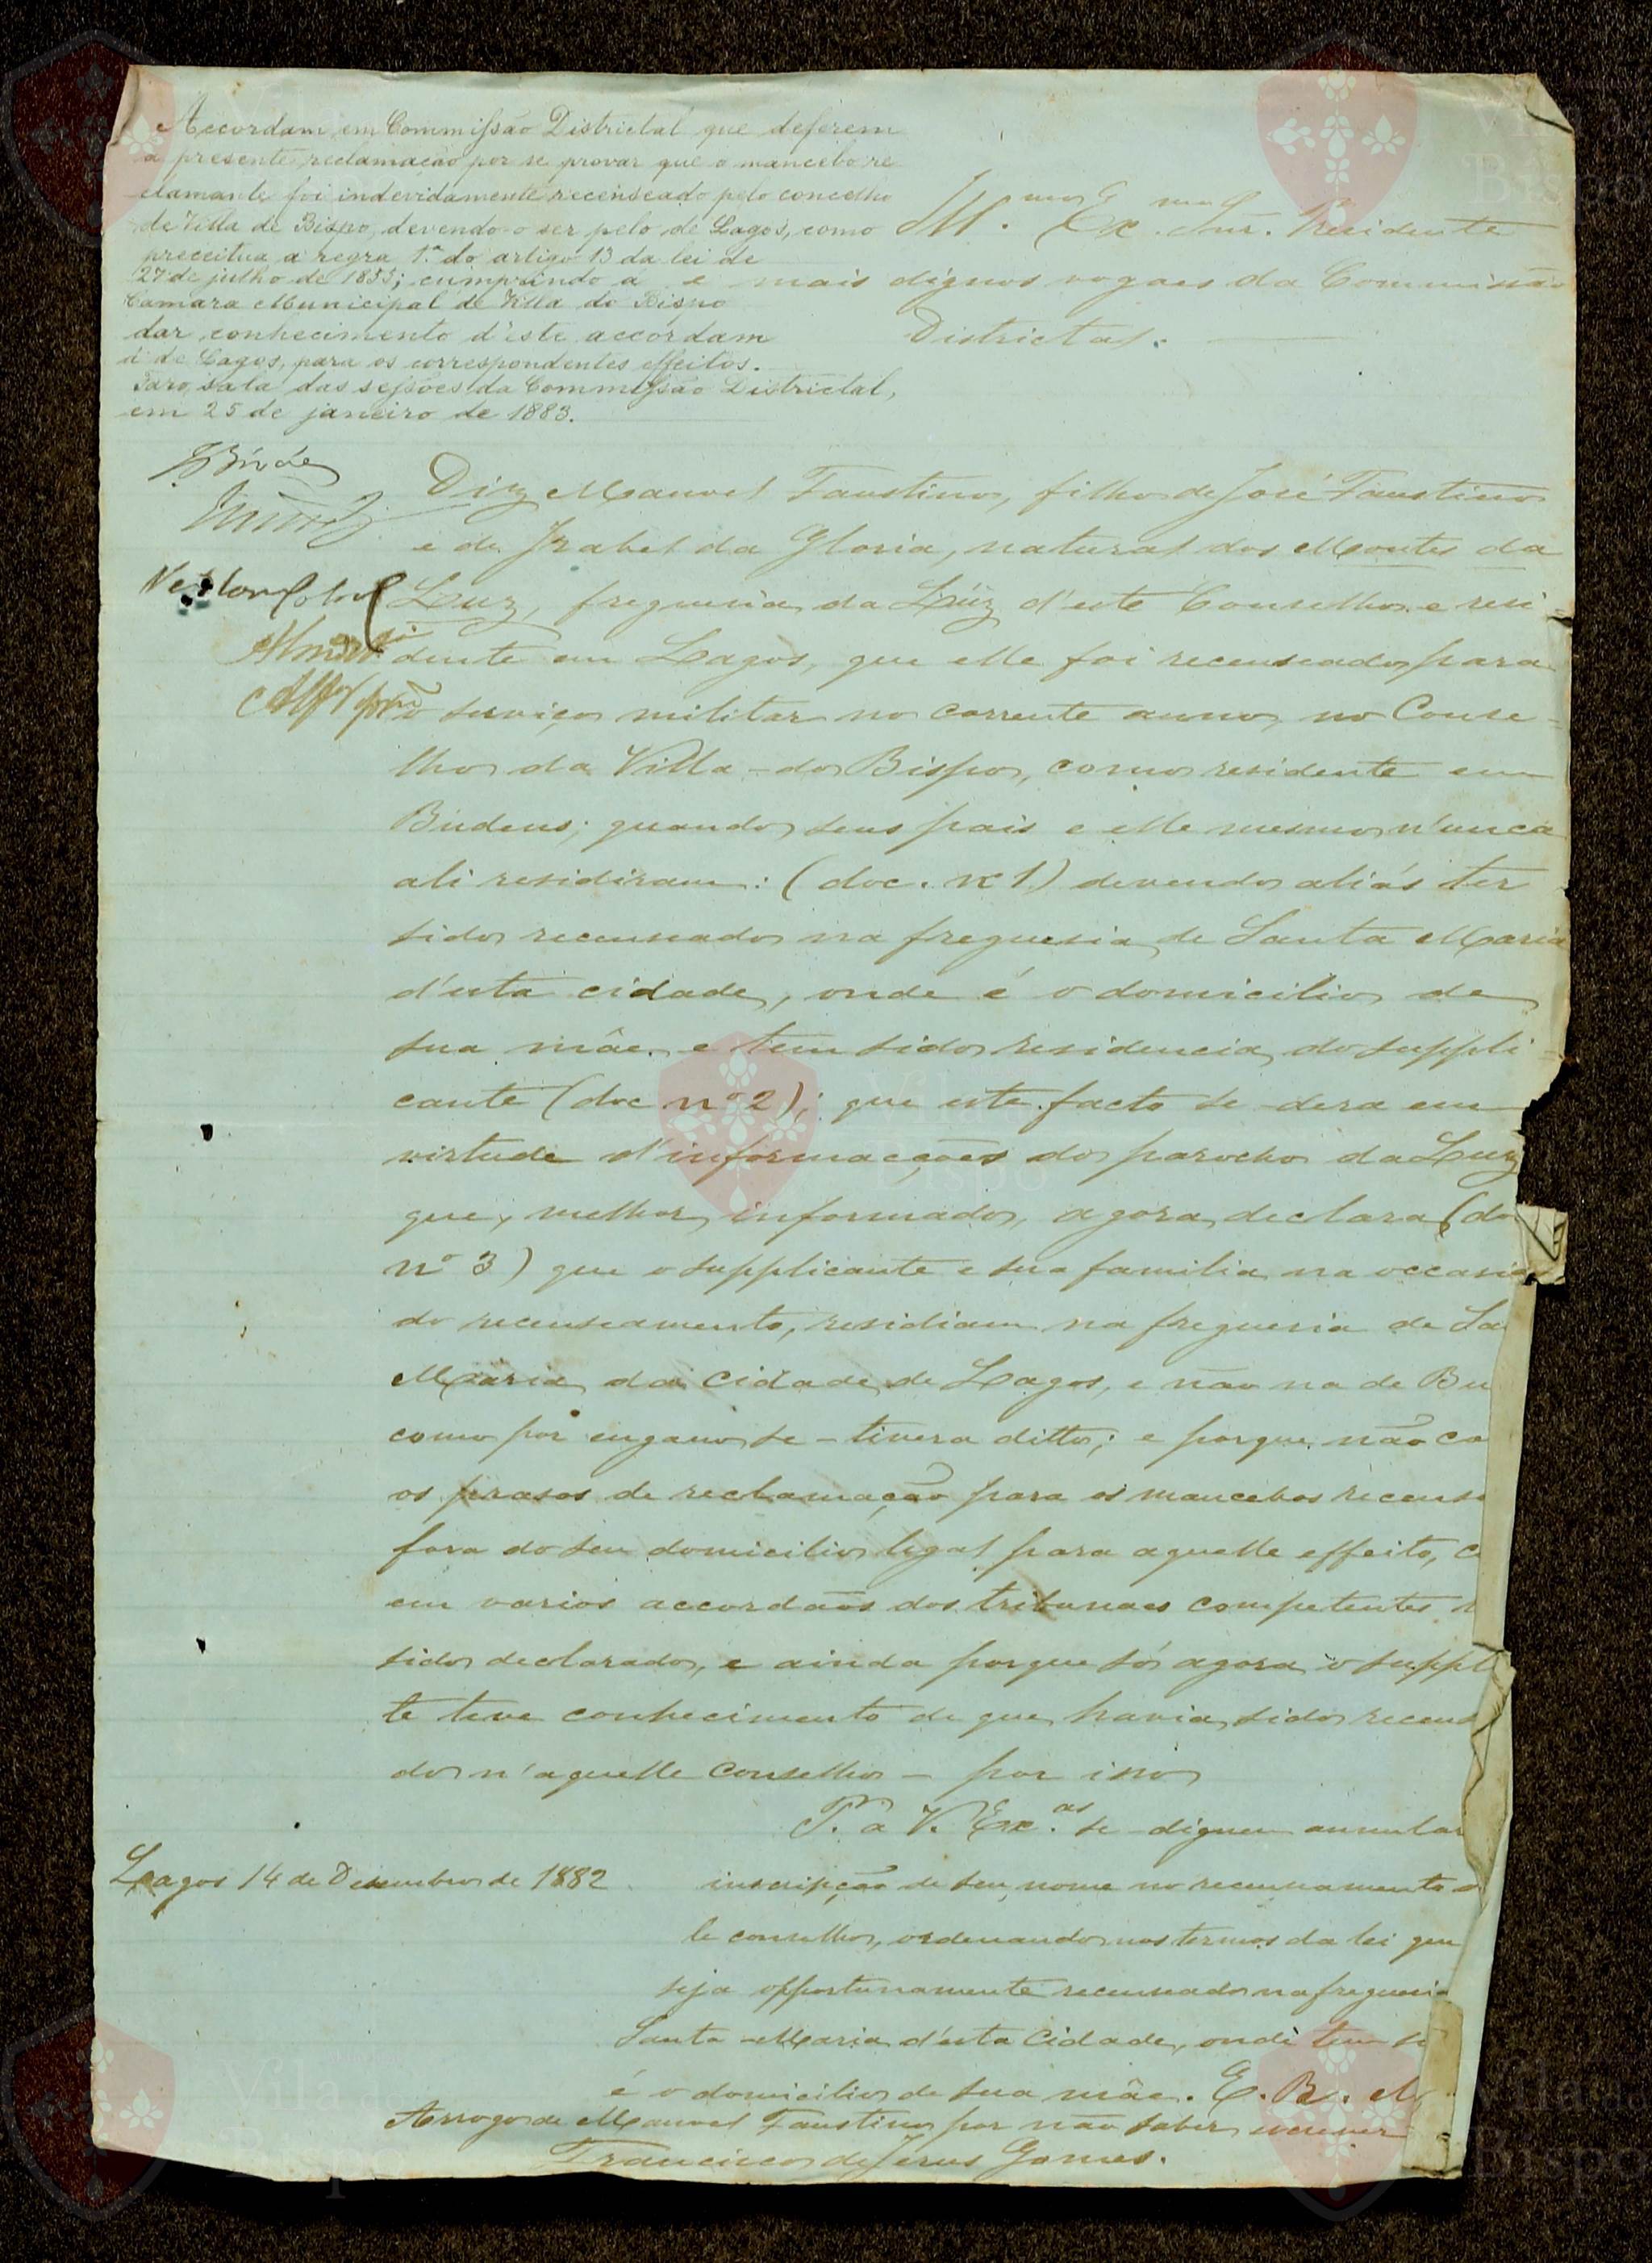 Accordam em Commissão Districtal que deferem
a presente reclamação por se provar que o mancebo re
clamante foi indevidamente recenseado pelo concelho
de Villa de Bispo, devendo-o ser pelo de Lagos, como
preceitua a regra 1ª do artigo 13 da lei de
27 de julho de 1855; cumprindo a
Camara Municipal de Villa do Bispo
dar conhecimento d'este accordam
á de Lagos, para os correspondentes effeitos.
Faro, sala das sessões da Commissão Districtal,
em 25 de janeiro de 1883.
Ill.mos Ex.mos Snr. Presidente
e mais dignos vogaes da Commissão
Districtal.
Diz Manoel Faustino, filho de José Faustino
e de Izabel da Gloria, natural dos Montes da
Luz, freguesia da Luz d'este Conselho e resi-
dente em Lagos, que elle foi recenseado para
o serviço militar no corrente anno, no Conse-
lho da Villa-do Bispo, como residente em
Budens; quando seus pais e elle mesmo n'unca
ali residiram: (doc. nº 1) devendo aliás ter
sido recenseado na freguesia de Santa Maria
d'esta cidade, onde é o domicilio de
sua mãe e tem sido residencia do suppli-
cante (doc nº 2); que este facto se-dera em
virtude d'informacções do parocho da Luz
que, melhor informado, agora declara (do
nº 3) que o supplicante e sua familia na occasiã
do recenseamento, residiam na freguesia de Sa
Maria da cidade de Lagos, e não na de Bu
como por engano se-tivera ditto; e porque não co
os prasos de reclamação para os mancebos recense
fora do seu domicilio legal para aquelle effeito, c
em varios accordãos dos tribunaes competentes
sido declarado, e ainda porque só agora o suppli
te teve conhecimento de que havia sido recense
do n'aquelle conselho - por isso
P. a V. Ex.as se-dignem annular
inscripção de seu nome no recenseamento
le conselho, ordenando nos termos da lei que
seja opportunamente recenseado na freguesia
Santa-Maria d'esta Cidade, onde tem si
é o domicilio de sua mãe. E. R. M
Lagos 14 de Desembro de 1882
Arrogo de Manoel Faustino por não saber escrever
Francisco de Jesus Gomes.
Vila do
Bispo